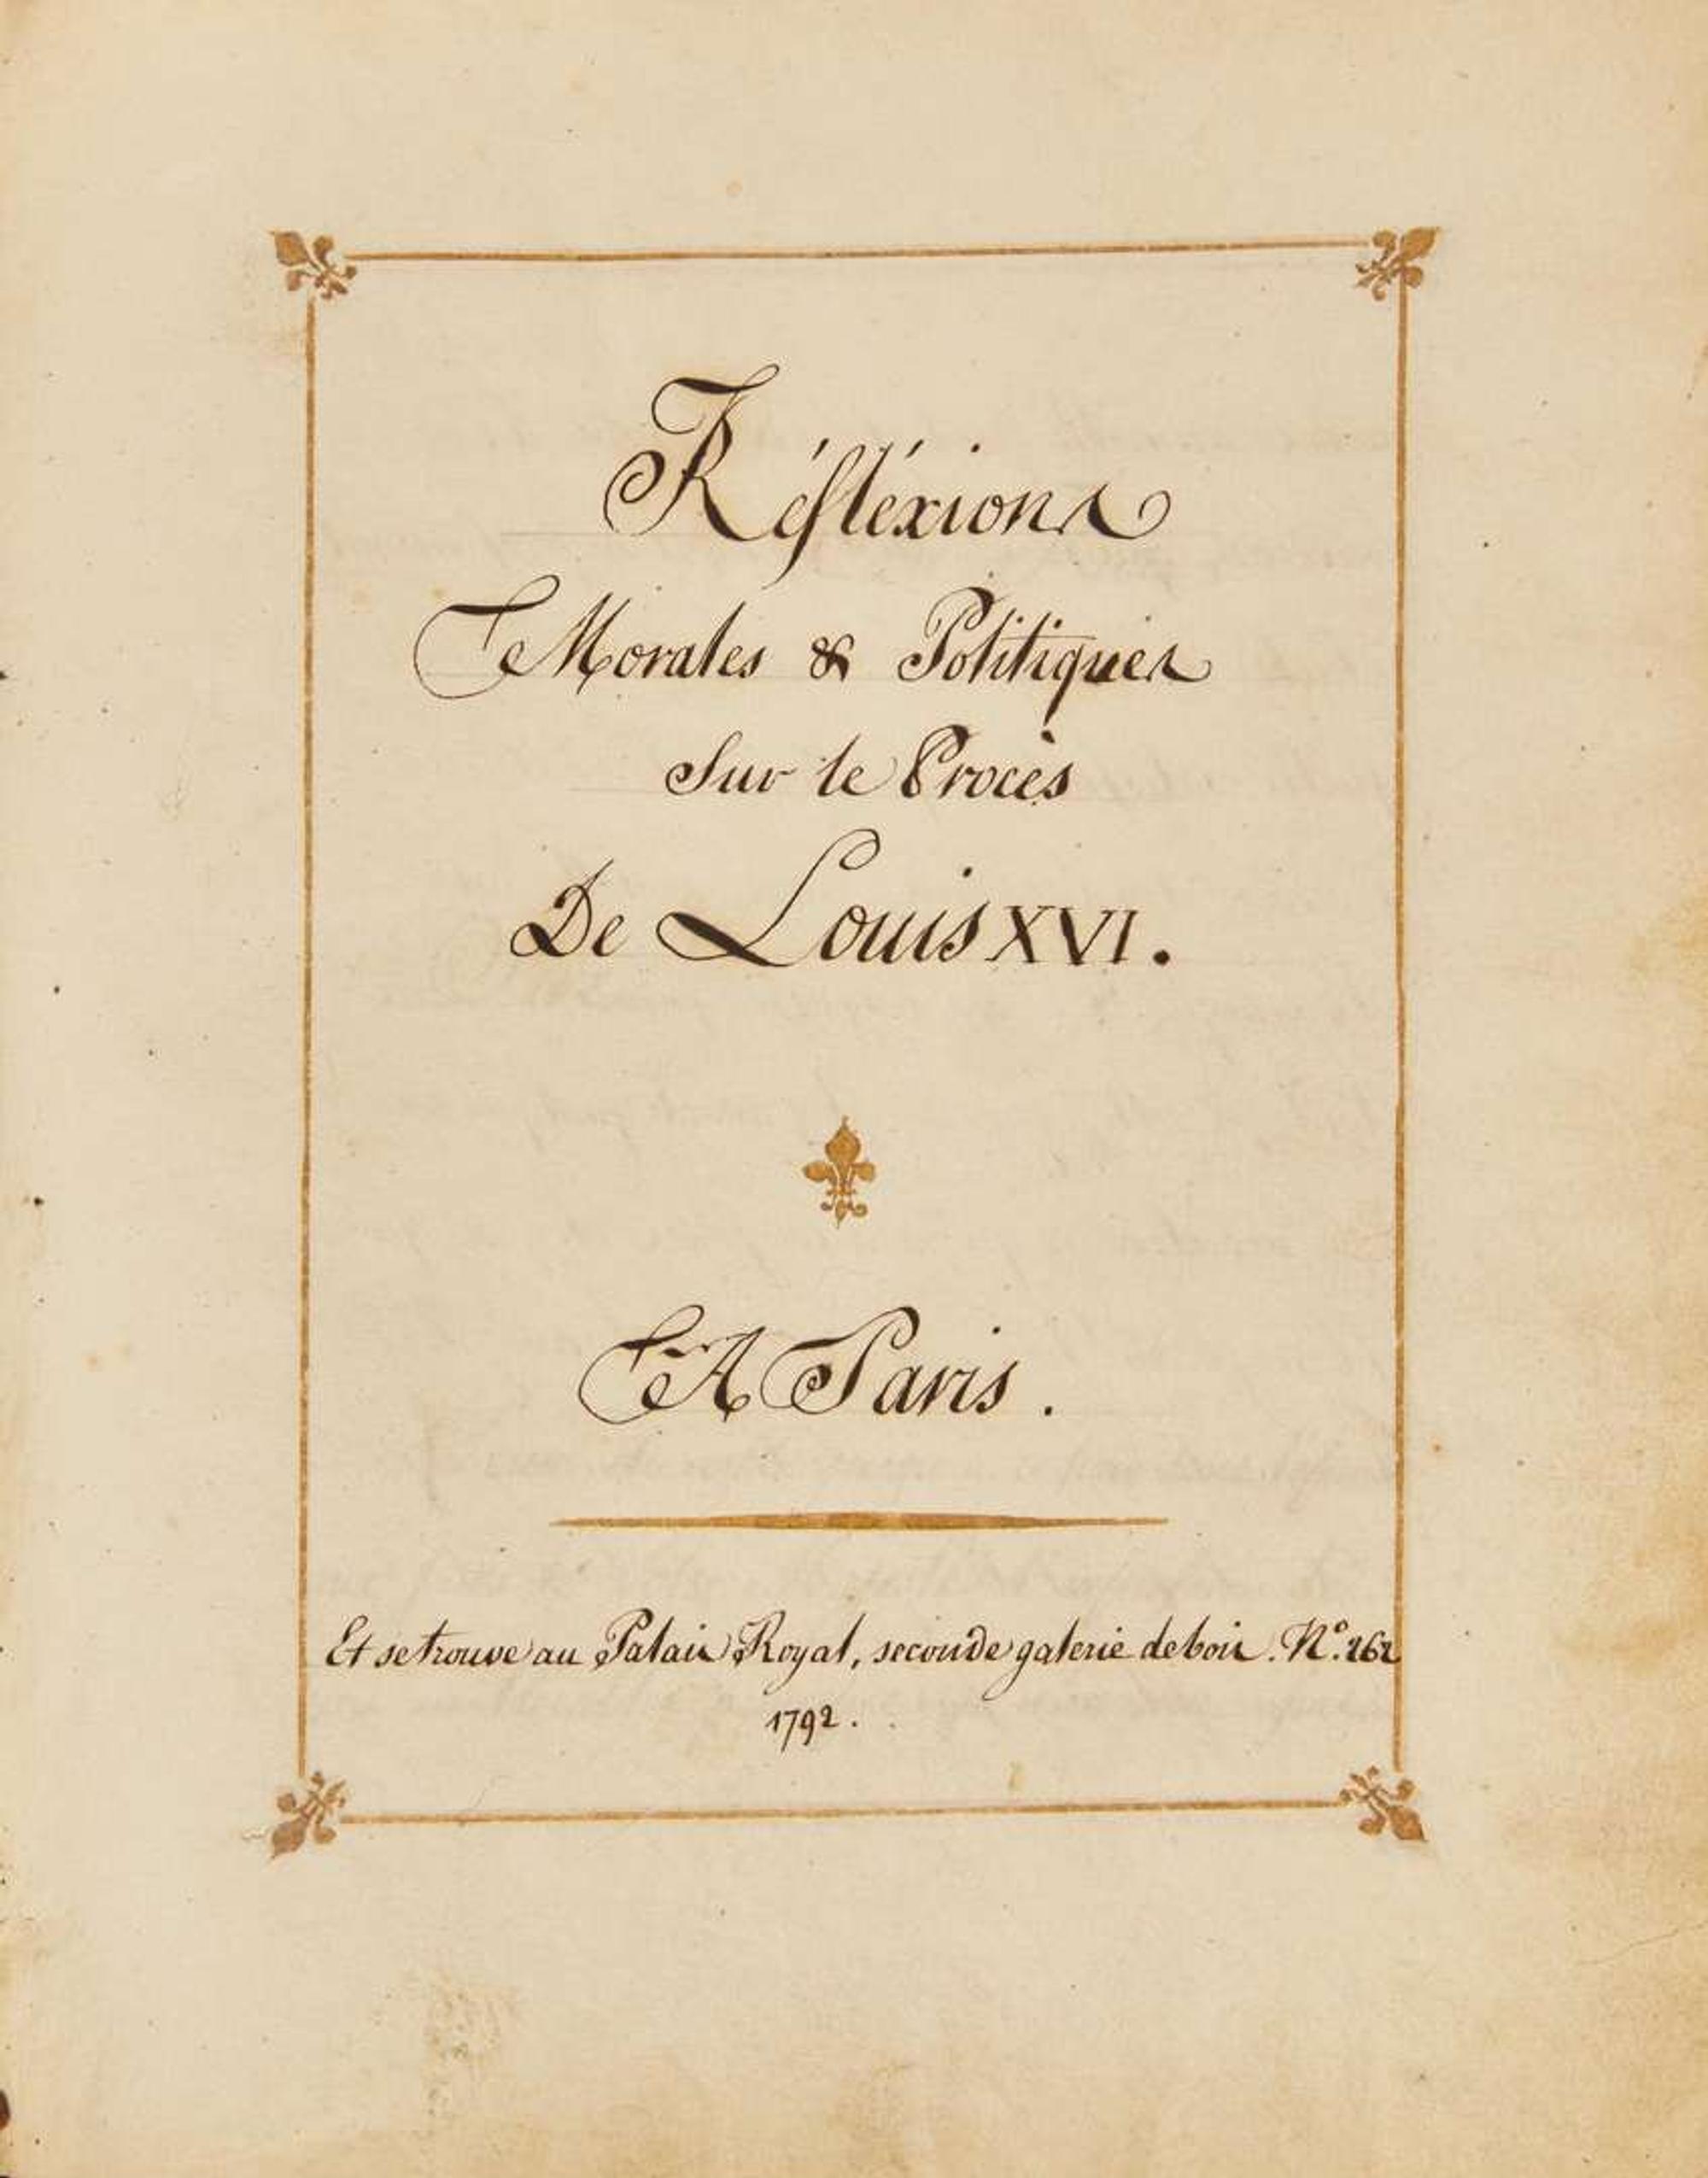 Réfléxions
Morales & Politiques
Sur le Procès
De Louis XVI.
A Paris.
Et se trouve au Palais Royal, seconde galerie de bois. N.° 262
1792.